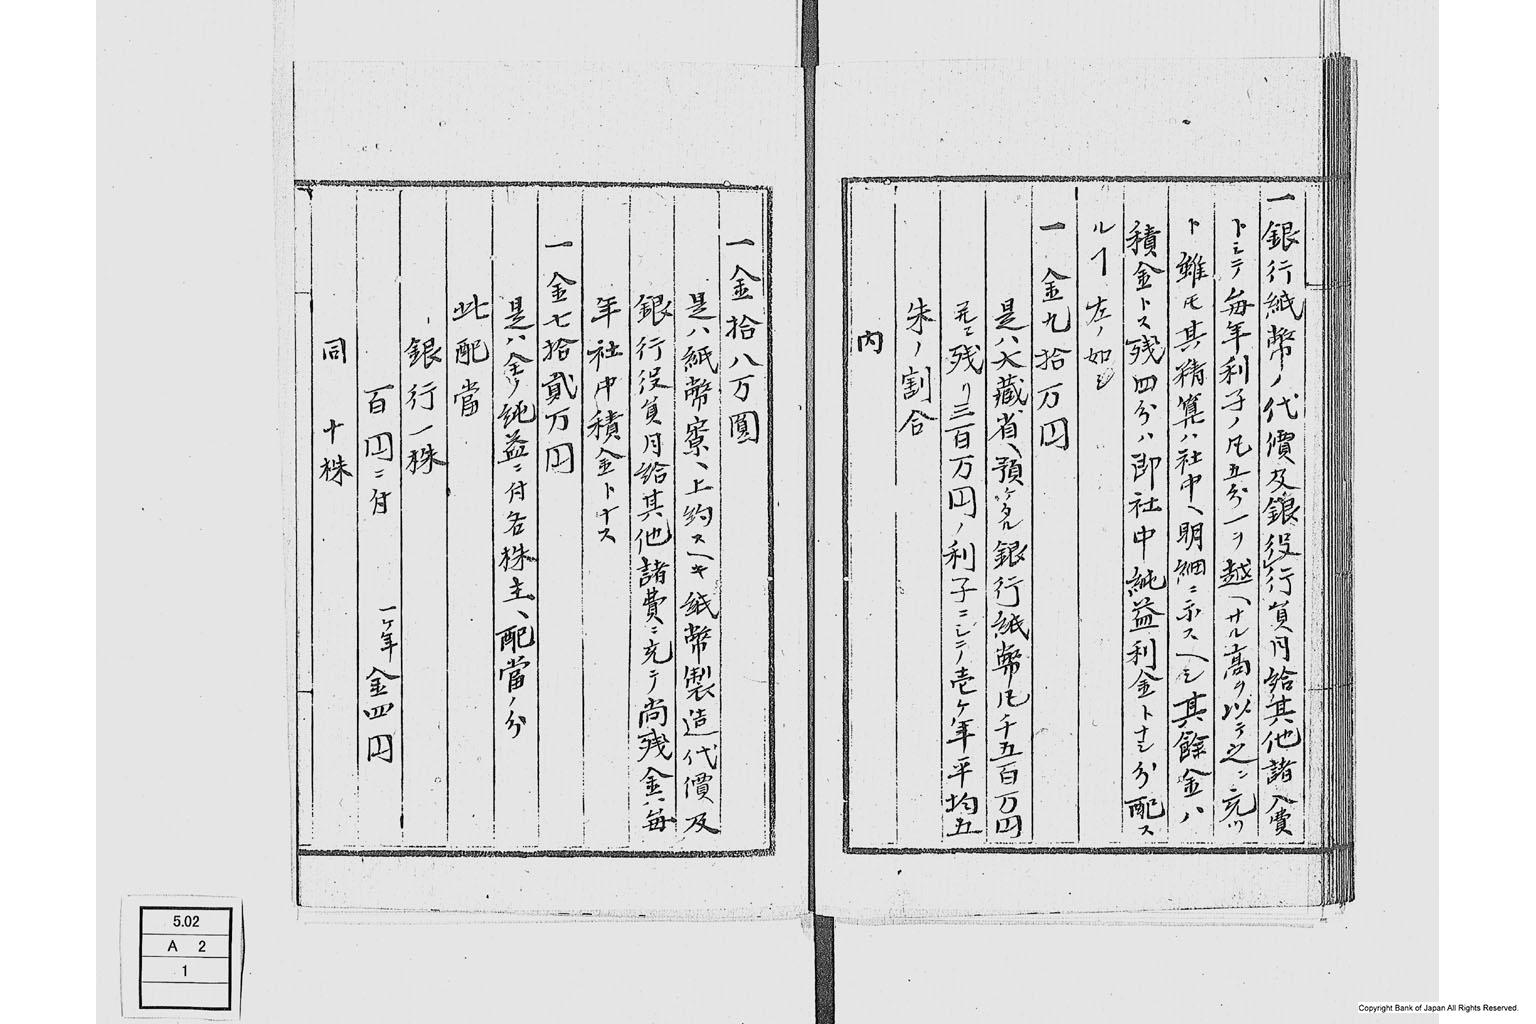 一銀行紙幣ノ代價及銀行役員月給其他諸入費
トシテ毎年利子ノ凡五分一ヲ越ヘサル高ヲ以テ之ニ充ツ
ト雖モ其精算ハ社中ヘ明細ニ示スヘシ其餘金ハ
積金トス残四分ハ即社中純益利金トナシ分配ス
ルヿ左ノ如シ
一金九拾万円
是ハ大藏省ヘ預ケタル銀行紙幣凡千五百万円
残リ三百万円ノ利子ニシテ壱ケ年平均五
朱ノ割合
内
一金拾八万圓
是ハ紙幣寮ヘ上約スヘキ紙幣製造代價及
銀行役員月給其他諸費ニ充テ尚残金ハ毎
年社中積金トナス
一金七拾貳万円
是ハ全ク純益ニ付各株主ヘ配當ノ分
此配當
銀行一株
百円ニ付 一ケ年金四円
同 十株
5.02
A 2
1
Copyright Bank of Japan All Rights Reserved.